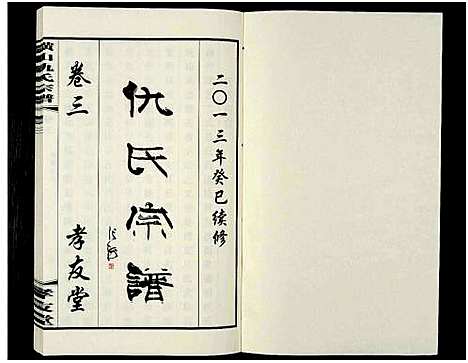 二〇一三年癸巳续修
仇氏宗譜
卷三
孝友堂
黄山仇氏宗譜
孝友堂